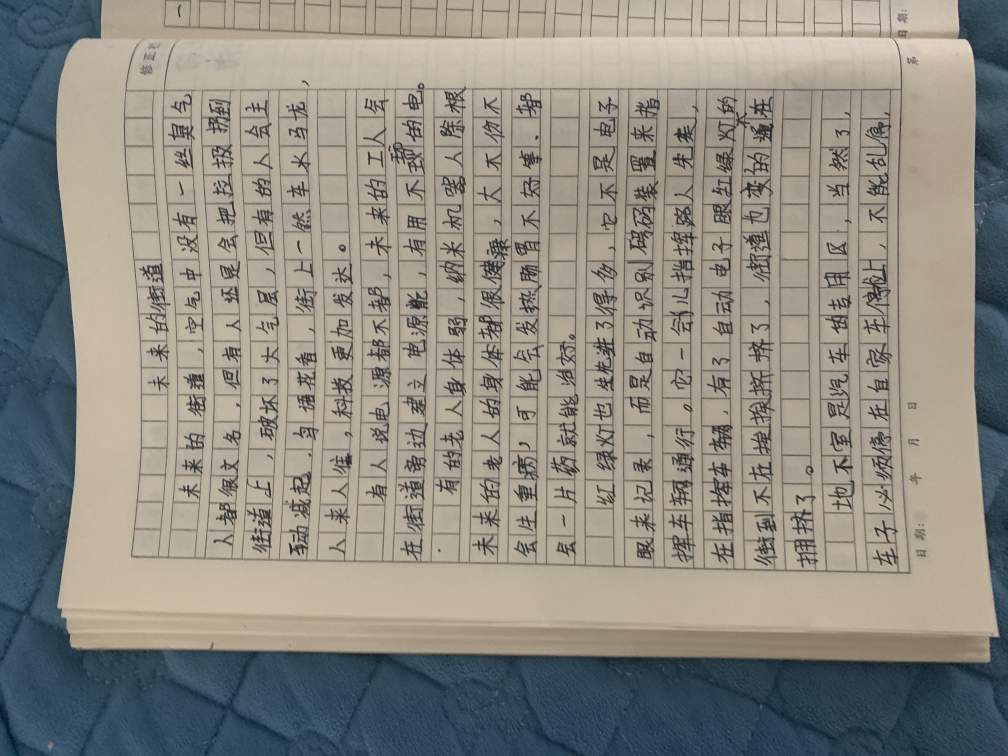 修正栏
未来的街道
未来的街道，空气中没有一丝臭气
人都很文名，但有人还是会把垃圾扔到
街道上，破坏了大气层，但有的人会主
动减起。鸟语花香，街上一然车水马龙，
人来人往，科技更加发达。
有人说电源都不都，未来的工人会
在街道旁边建立电源，有用不的电。
有的老人身体弱，纳米机器人除根
未来的老人的身体都很健康，大不伤不
会生重病，可能会发热肠胃不好事、都
一片药就能治好。
红绿灯也先进了得多，它不是电子
眼来记录，而是自动识别码装置来指
挥车辆通行。它一会儿指挥路人先来，
在指挥车辆，有了自动电子眼红绿灯的
街到不在挨挨挤挤了，街道也变的
拥挤了。
地下室是汽车的专用区，当然了，
车子必须停在自家车停止，不能乱停，
日期： 年 月 日
第
日期：